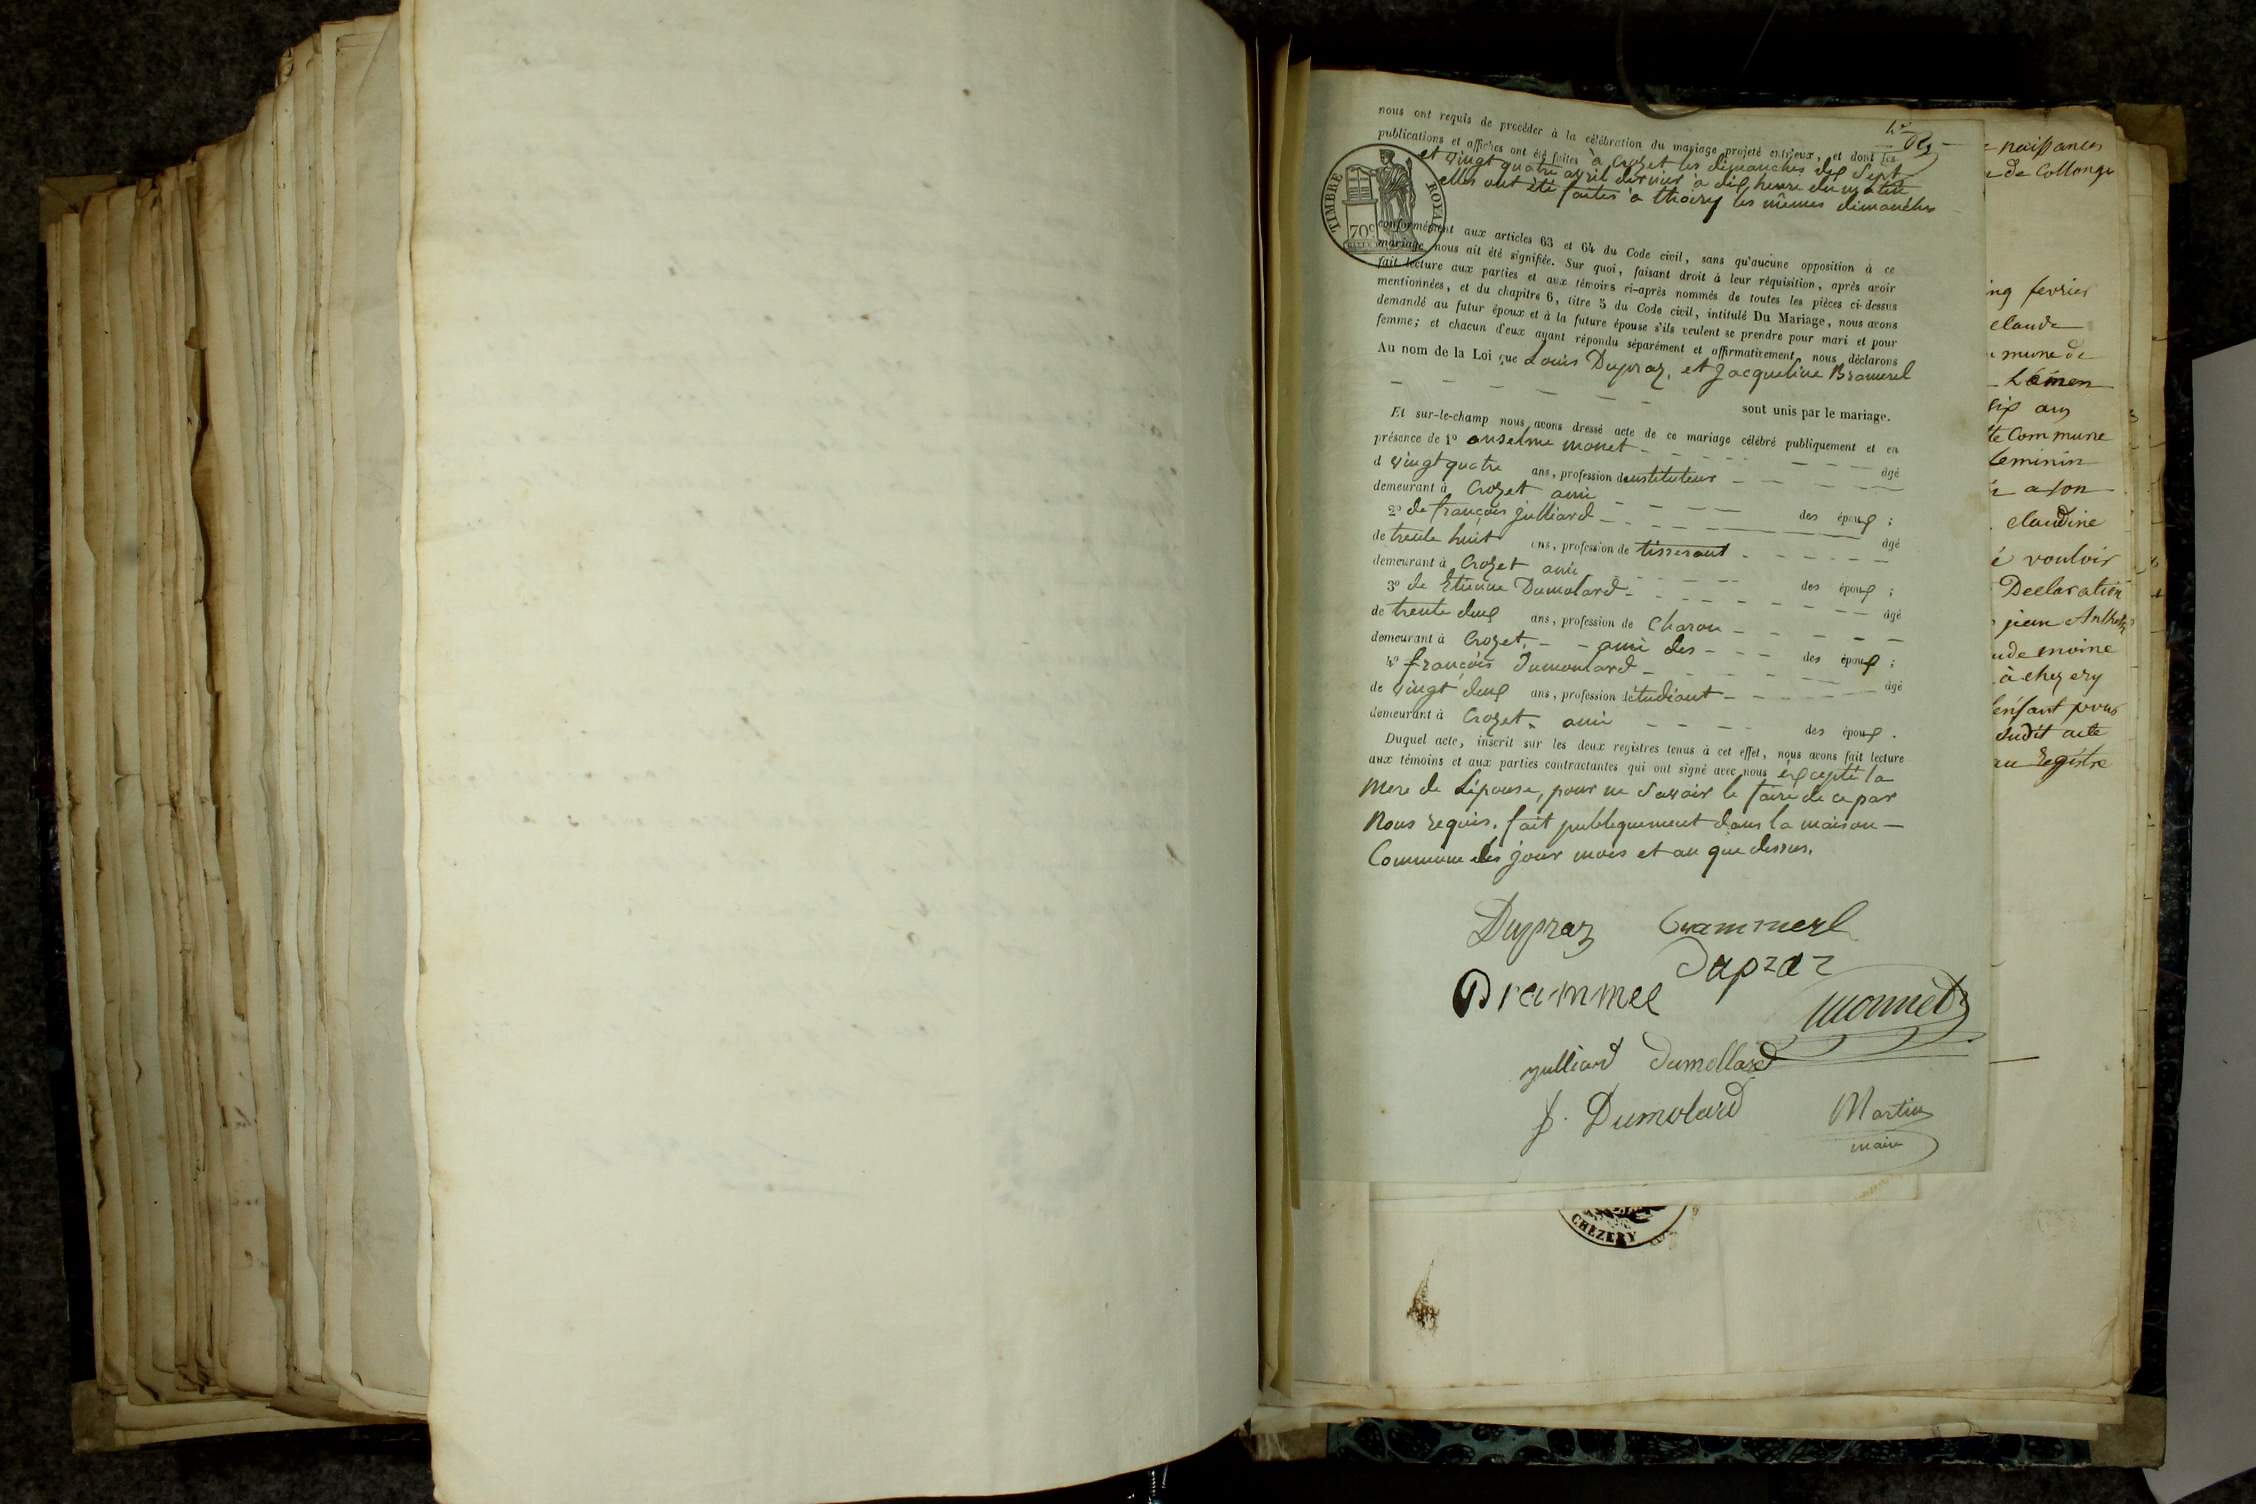 nous ont requis de procéder à la célébration du mariage projeté entr'eux, et dont les
publications et affiches ont été faites à Crozet les dimanches dix sept
et vingt quatre avril dernier à dix heure du matin
elles ont été faites à thoiry les mêmes dimanches
TIMBRE ROYAL
70c
conformément aux articles 63 et 64 du Code civil, sans qu'aucune opposition à ce
mariage nous ait été signifiée. Sur quoi, faisant droit à leur réquisition, après avoir
fait lecture aux parties et aux témoins ci-après nommés de toutes les pièces ci-dessus
mentionnées, et du chapitre 6, titre 5 du Code civil, intitulé Du Mariage, nous avons
demandé au futur époux et à la future épouse s'ils veulent se prendre pour mari et pour
femme; et chacun d'eux ayant répondu séparément et affirmativement, nous déclarons
Au nom de la Loi que Louis Dupraz, et Jacqueline Bramerel
sont unis par le mariage.
Et sur-le-champ nous avons dressé acte de ce mariage célébré publiquement et en
présence de 1º anselme monet âgé
d vingt quatre ans, profession d'instituteur
demeurant à Crozet ami des époux ;
2º de françois julliard âgé
de trente huit ans, profession de tisserant
demeurant à Crozet ami des époux ;
3º de Etienne Dumolard âgé
de trente deux ans, profession de Charon
demeurant à Crozet, ami des des époux ;
4º françois Dumoulard âgé
de vingt deux ans, profession d'étudiant
demeurant à Crozet ami des époux .
Duquel acte, inscrit sur les deux registres tenus à cet effet, nous avons fait lecture
aux témoins et aux parties contractantes qui ont signé avec nous éxcepté la
Mere de Lépouse, pour ne Savoir le faire de ce par
Nous requis. fait publiquement dans la maison
Commune les jour mois et an que dessus.
Dupraz Brammerel
Dupraz
Brammee
Monnet
julliard Dumollard
f. Dumolard
Martin
maire
CHEZERY
naissances
de Collonge
février
claude
mune de
six ans
te Commune
feminin
a son
claudine
é vouloir
Declaration
jean Anthelme
ude moine
à chezery
enfant pour
sudit acte
au Registre